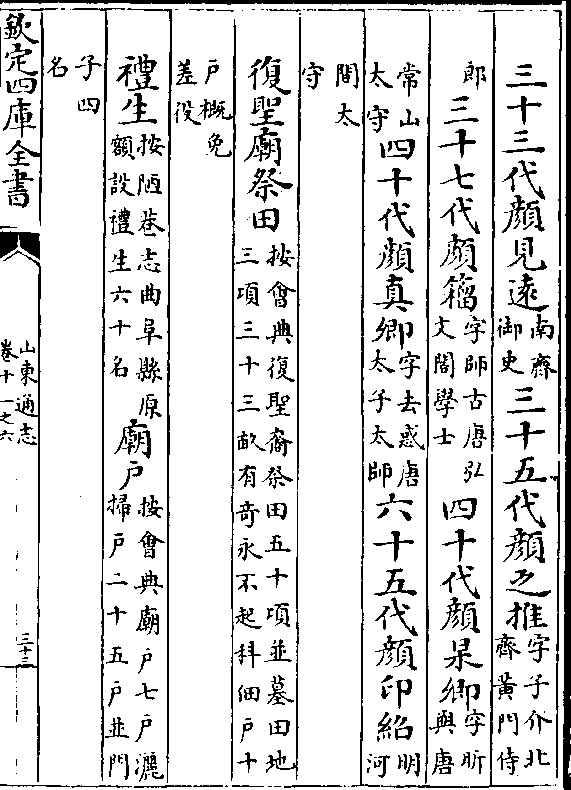 三十三代顔見遠南齊御史三十五代顔之推字子介北齊黄門侍
郎三十七代顔籀字師古唐弘文閣學士四十代顔杲卿字昕唐與
常山太守四十代顔真卿字去惑唐太子太師六十五代顔印紹明河
間太守
復聖廟祭田按會典復聖裔祭田五十項並墓田地三項三十三畝有奇永不起科佃户十
户概免差役
禮生按陋巷志曲阜縣原額設禮生六十名廟户按會典廟户七户灑掃户二十五户並門
子四名
欽定四庫全書
山東通志
卷十一之六
三十三